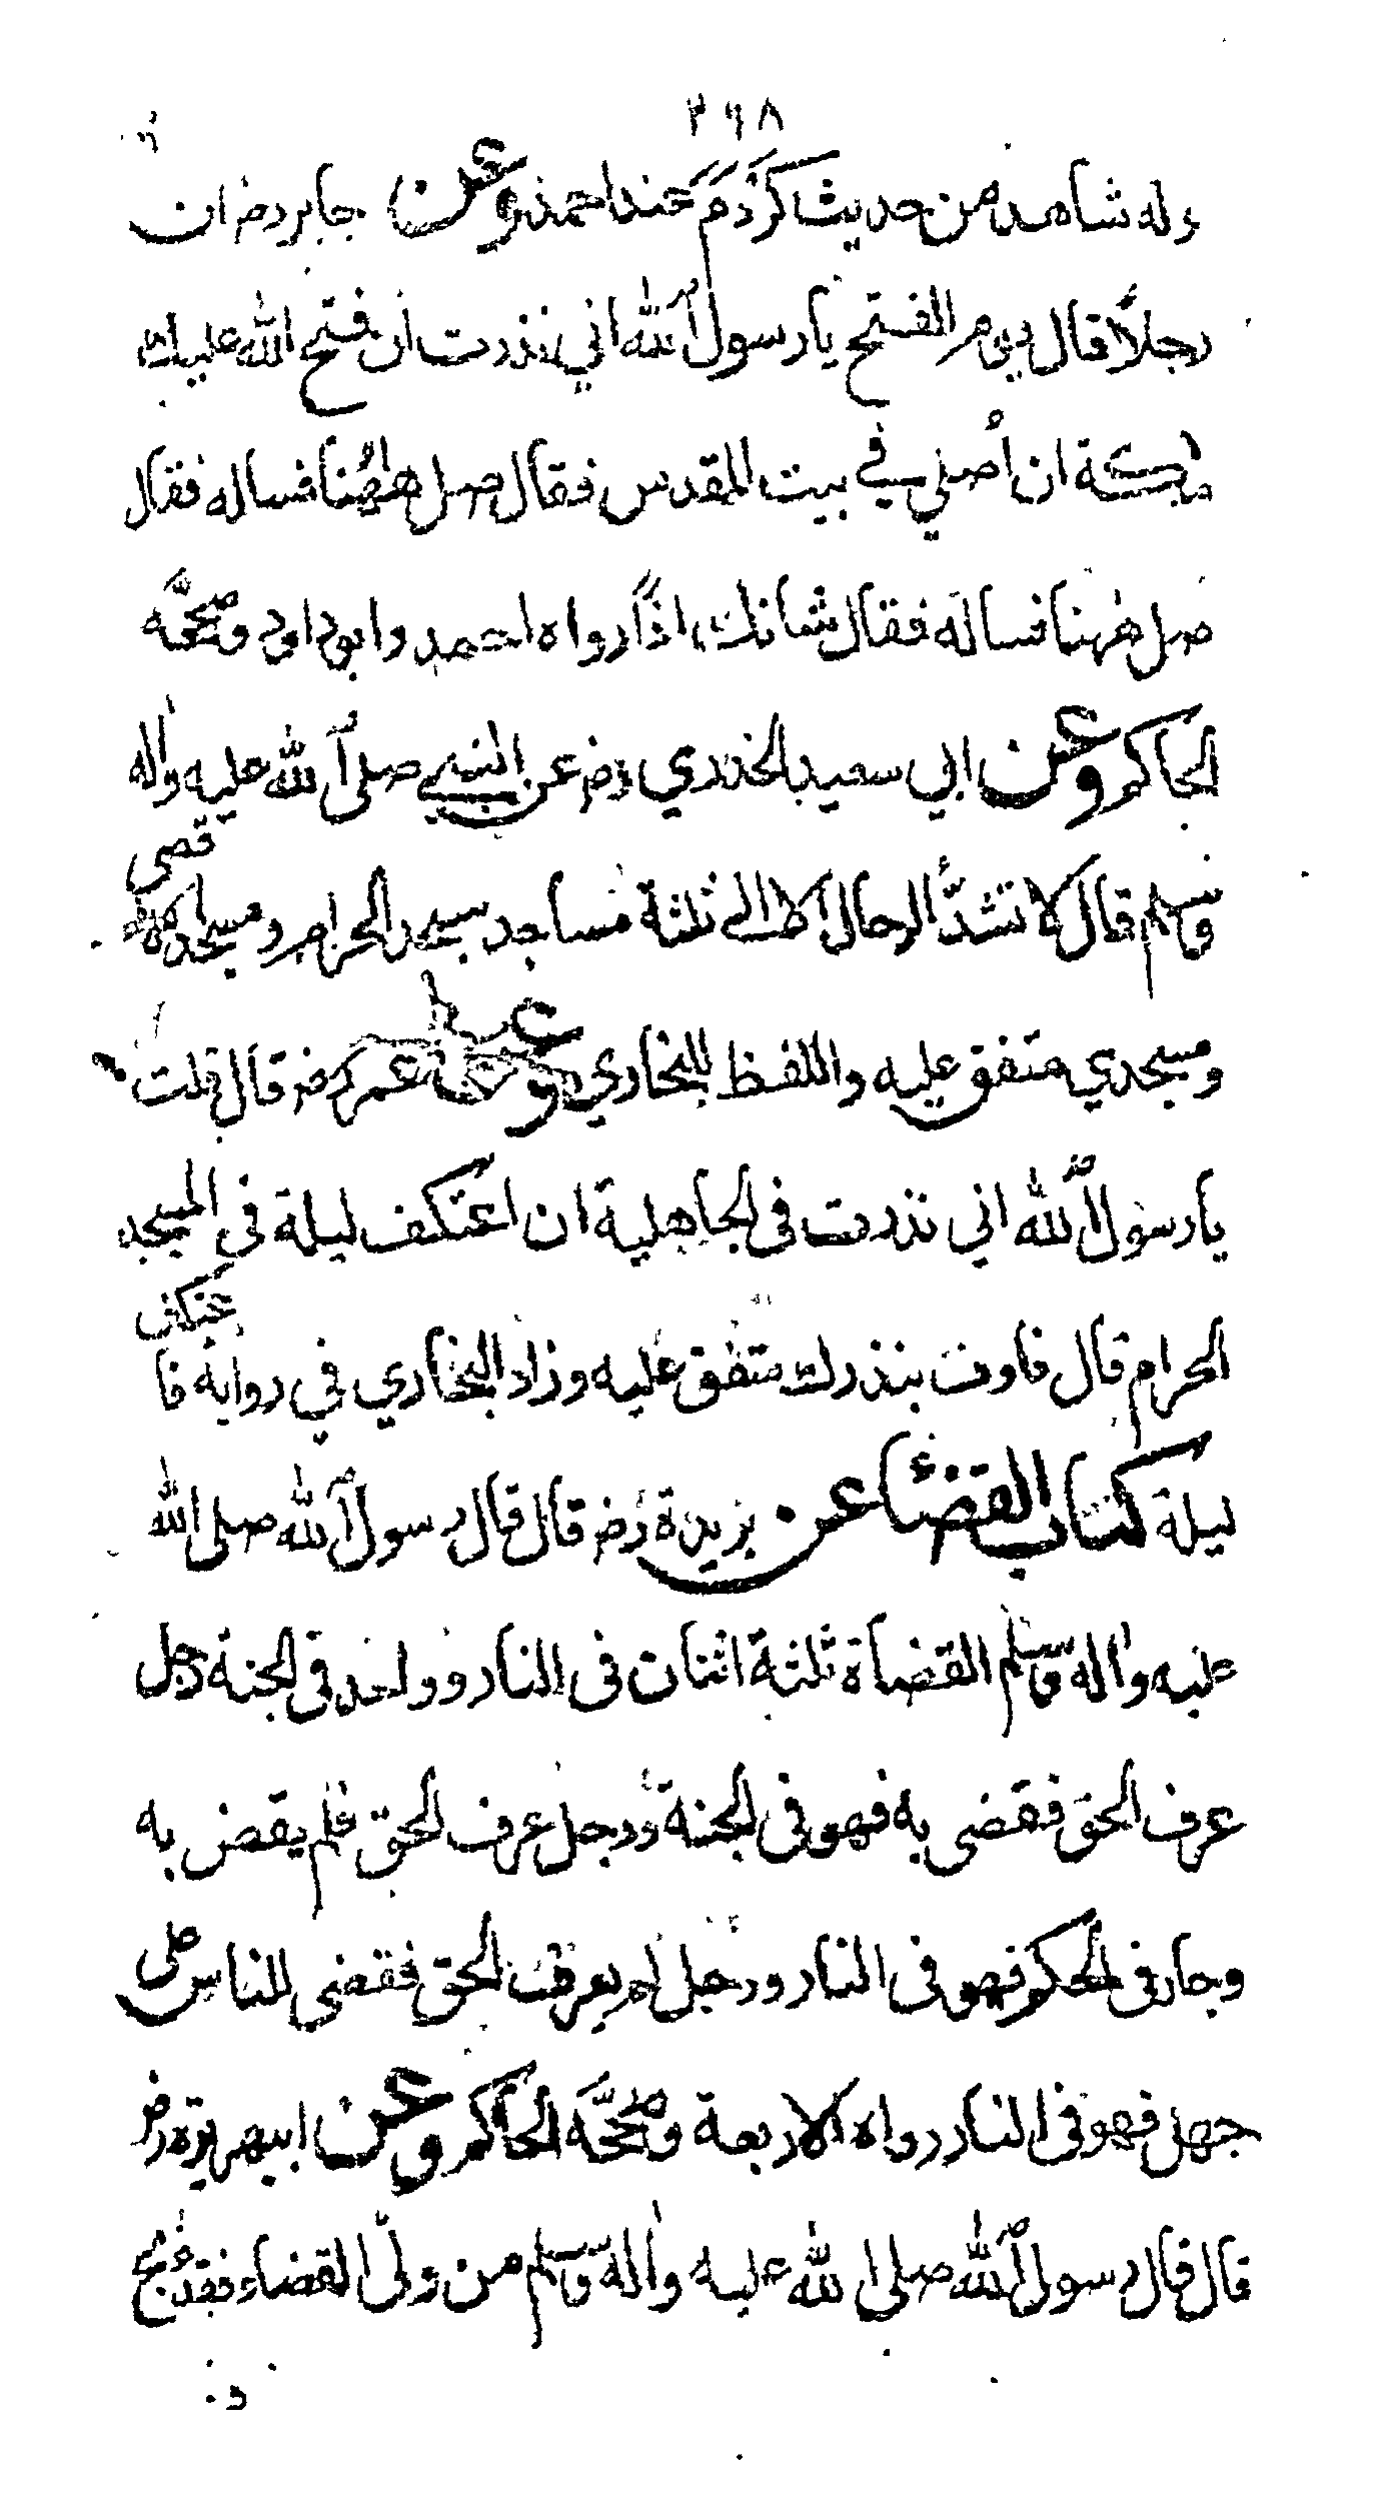 ٣٦٨
وله شاهد من حديث كردم عند احمد وعن جابر رض ان
رجلاً قال يوم الفتح يا رسول الله اني نذرت ان فتح الله عليك
مكة ان أصلي في بيت المقدس فقال صل ههنا فساله فقال
صل ههنا فساله فقال شانك اذاً رواه احمد وابوداود وصححه
الحاكم وعن ابي سعيد الخدري رض عن النبي صلى الله عليه واله
وسلم قال لا تشدّ الرحال الا الى ثلثة مساجد مسجد الحرام ومسجد الاقصى
ومسجدي متفق عليه واللفظ للبخاري وعن عمر رض قال قلت
يا رسول الله اني نذرت فى الجاهلية ان اعتكف ليلة في المسجد
الحرام قال فاوف بنذرك متفق عليه وزاد البخاري في رواية فاعتكف
ليلة كتاب القضاء عن بريدة رض قال قال رسول الله صلى الله
عليه واله وسلم القضاة ثلثة اثنان فى النار وواحد فى الجنة رجل
عرف الحق فقضى به فهو فى الجنة ورجل عرف الحق فلم يقض به
وجار فى الحكم فهو فى النار ورجل لم يعرف الحق فقضى للناس على
جهل فهو فى النار رواه الاربعة وصححه الحاكم وعن ابيهريرة رض
قال قال رسول الله صلى الله عليه واله وسلم من ولى القضاء فقد ذبح